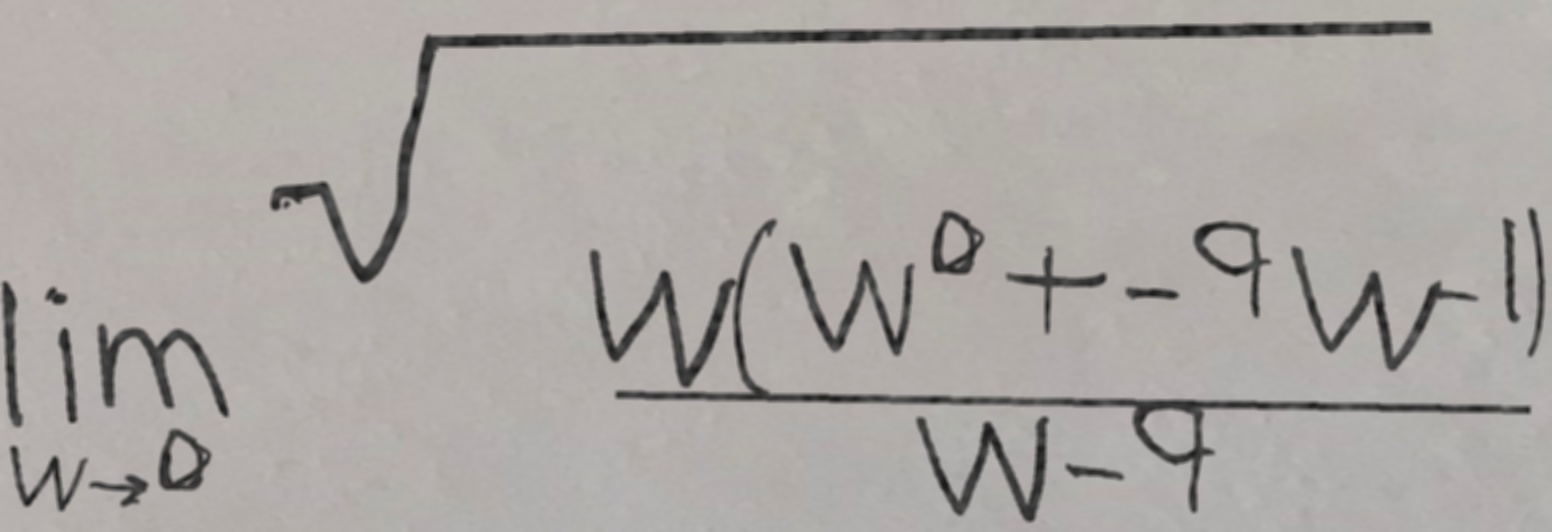 \lim_{w \to 0} \sqrt{\frac{w(w^0 + -9w^{-1})}{w-9}}